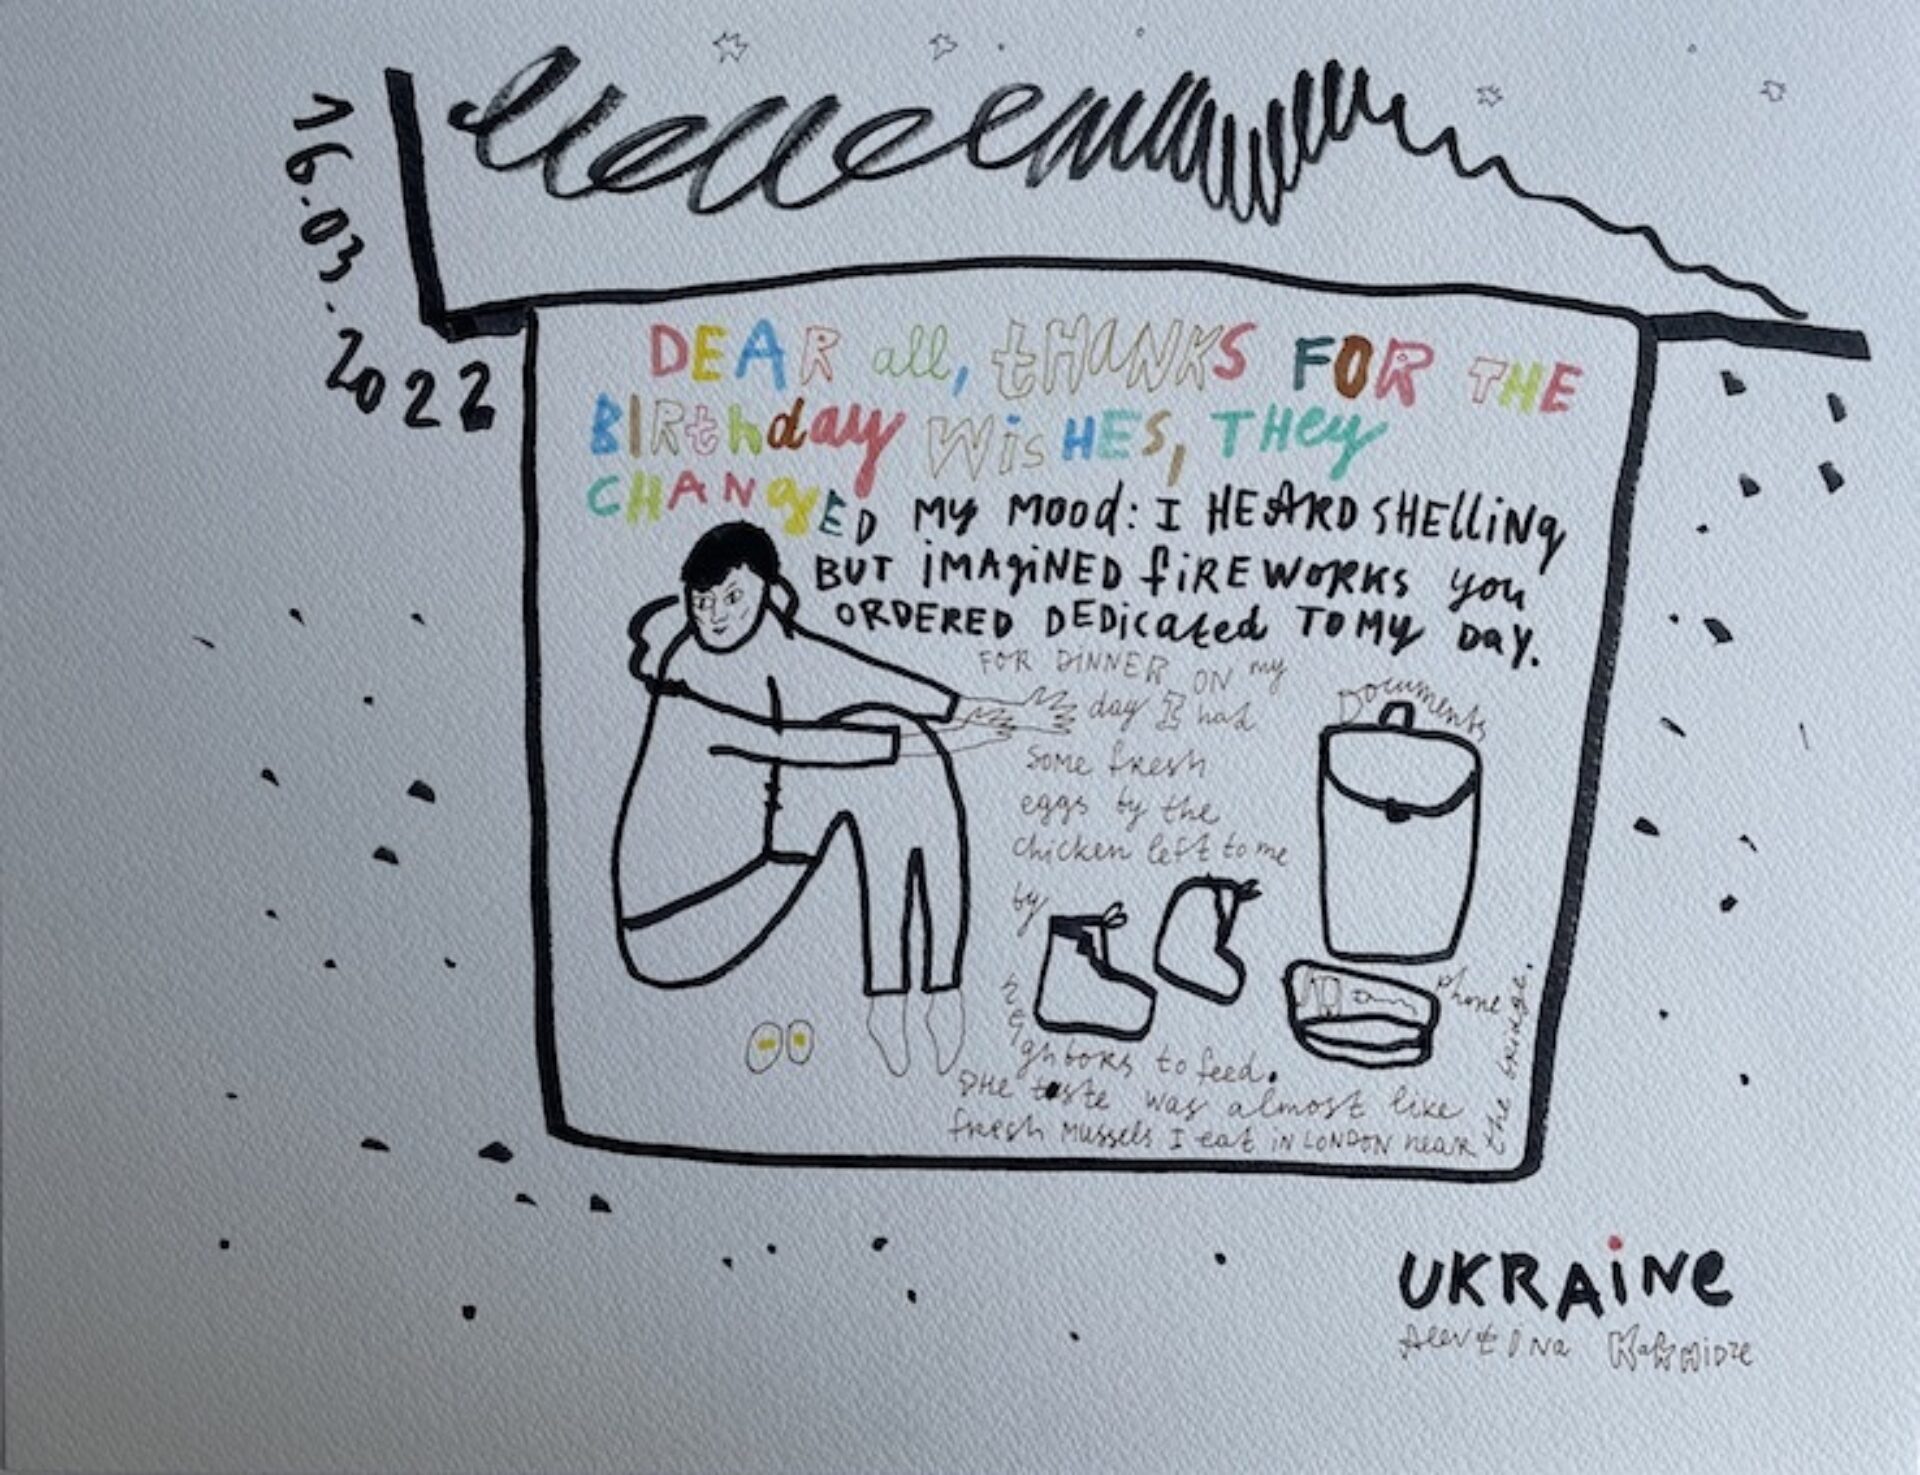 16.03.2022
DEAR all, tHANKS FOR THE
BIRthday WisHES, THey
CHANgED MY MOOD: I HEARD SHElliNg
BUT iMAgiNED fiREWORKS you
ORDERED DEDicated TO MY DAY.
FOR DINNER ON my
day I had
some fresh
eggs by the
chicken left to me
by
neighbors to feed.
The taste was almost like
fresh mussels I eat IN LONDON near
the bridge.
Documents
phone
UKRAiNe
Alevtina Kakhidze